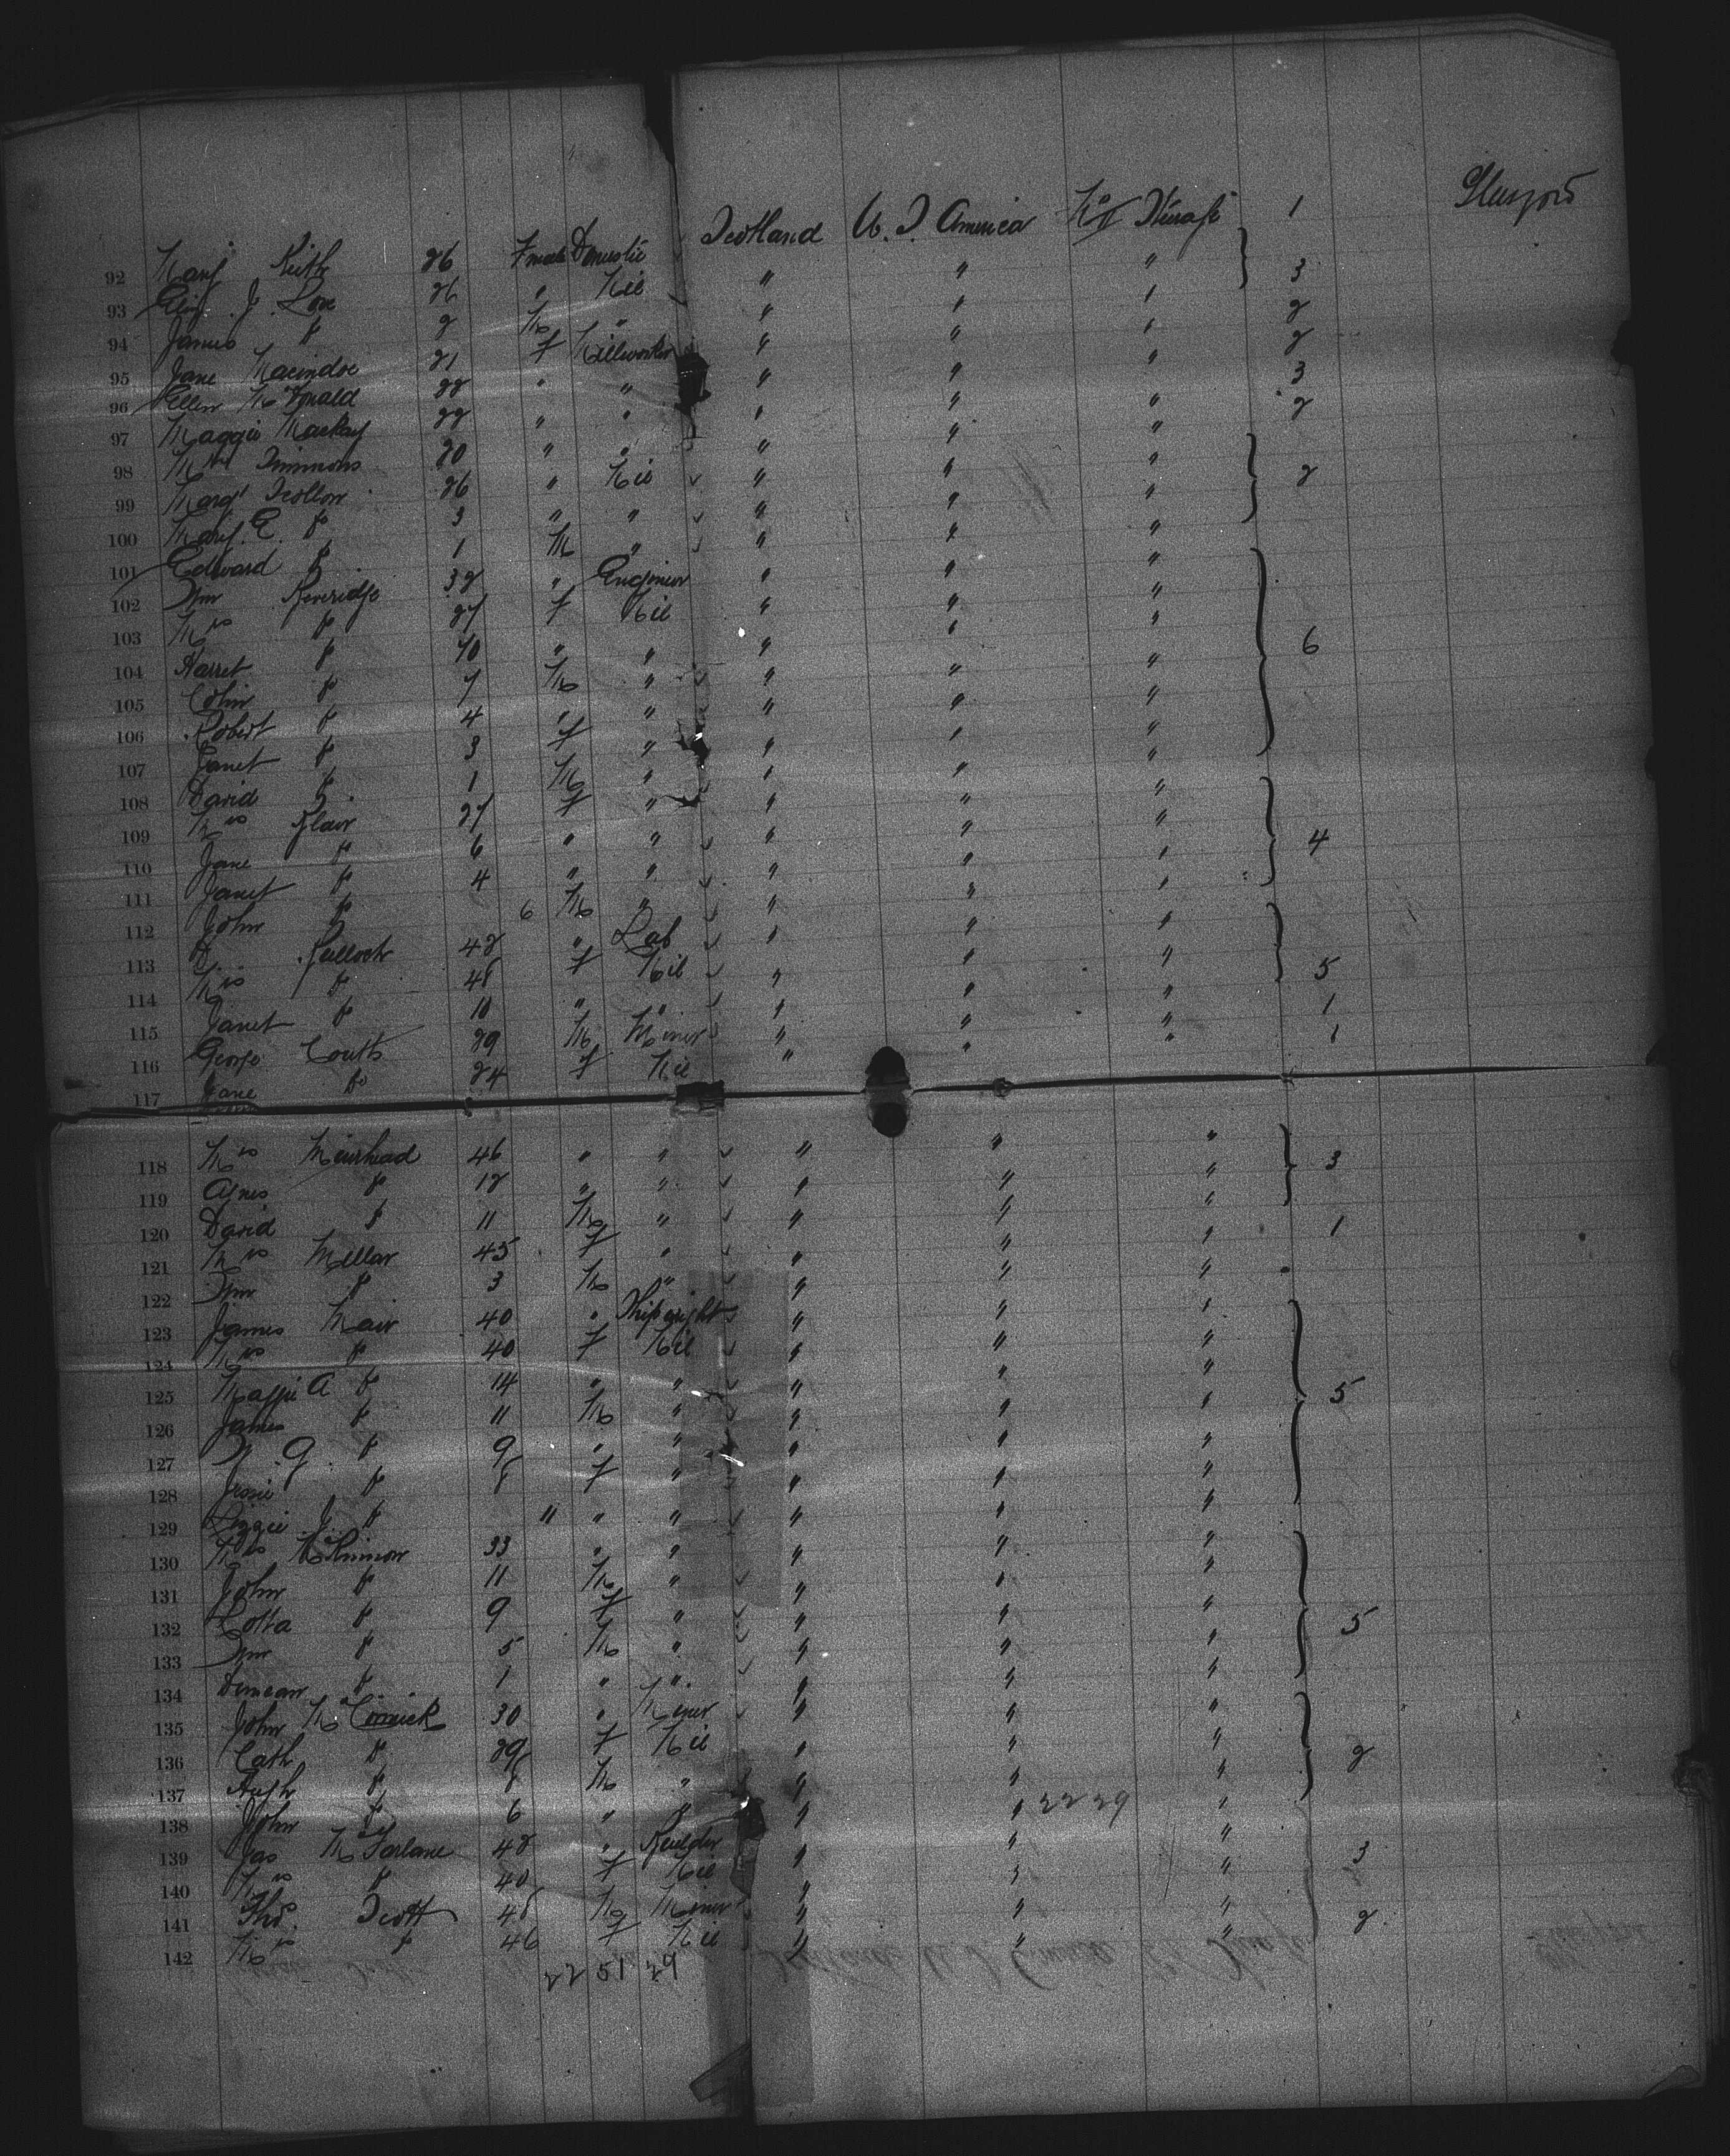 92 Mary Keith 26 Female Domestic Scotland U. S. America No II Steerage 1 Glasgow
93 Eliz. J. Love 26 " Nil " " " 3
94 James Do 2 M " " " " 2
95 Jane Macindoe 21 f Millworker " " " 2
96 Ellen McDonald 22 " " " " " 3
97 Maggie Mackay 22 " " " " " 2
98 Mrs Simmons 20 " " " " "
99 Margt Scollon 26 " Nil " " " 2
100 Mary. E. Do 3 " " " " "
101 Edward Do 1 M " " " "
102 Wm Beveridge 32 " Engineer " " "
103 Mrs Do 27 f Nil " " "
104 Harret Do 10 " " " " " 6
105 Colin Do 7 M " " " "
106 Robert Do 4 " " " " "
107 Janet Do 3 f " " " "
108 David Do 1 M " " " "
109 Mrs Blair 27 f " " " "
110 Jane Do 6 " " " " " 4
111 Janet Do 4 " " " " "
112 John Do 6 M " " " "
113 D Bulloch 42 " Lab " " "
114 Mrs Do 48 f Nil " " " 5
115 Janet Do 10 " " " " " 1
116 George Coutts 29 M Miner " " " 1
117 Jane Do 24 f Nil " " "
118 Mrs Muirhead 46 " " " " " 3
119 Agnes Do 12 " " " " "
120 David Do 11 M " " " "
121 Mrs Millar 45 f " " " " 1
122 Wm Do 3 M " " " "
123 James Mair 40 " Shipwright " " "
124 Mrs Do 40 f Nil " " "
125 Maggie A Do 14 " " " " " 5
126 James Do 11 M " " " "
127 W. G. Do 9 " " " " "
128 Jessie Do 8 f " " " "
129 Lizzie J Do 11 " " " " "
130 Mrs McKinnon 33 " " " " "
131 John Do 11 M " " " "
132 Lotta Do 9 f " " " " 5
133 Wm Do 5 M " " " "
134 Duncan Do 1 " " " " "
135 John McCormick 30 " Miner " " "
136 Cath Do 29 f Nil " " " 2
137 Hugh Do 8 M " " " "
138 John Do 6 " " " " 22 29 "
139 Jas McFarlane 42 " Builder " " " 3
140 Mrs Do 40 f Nil " " "
141 Thos. Scott 48 M Miner " " " 2
142 Mrs Do 46 f Nil " " "
22 51 29